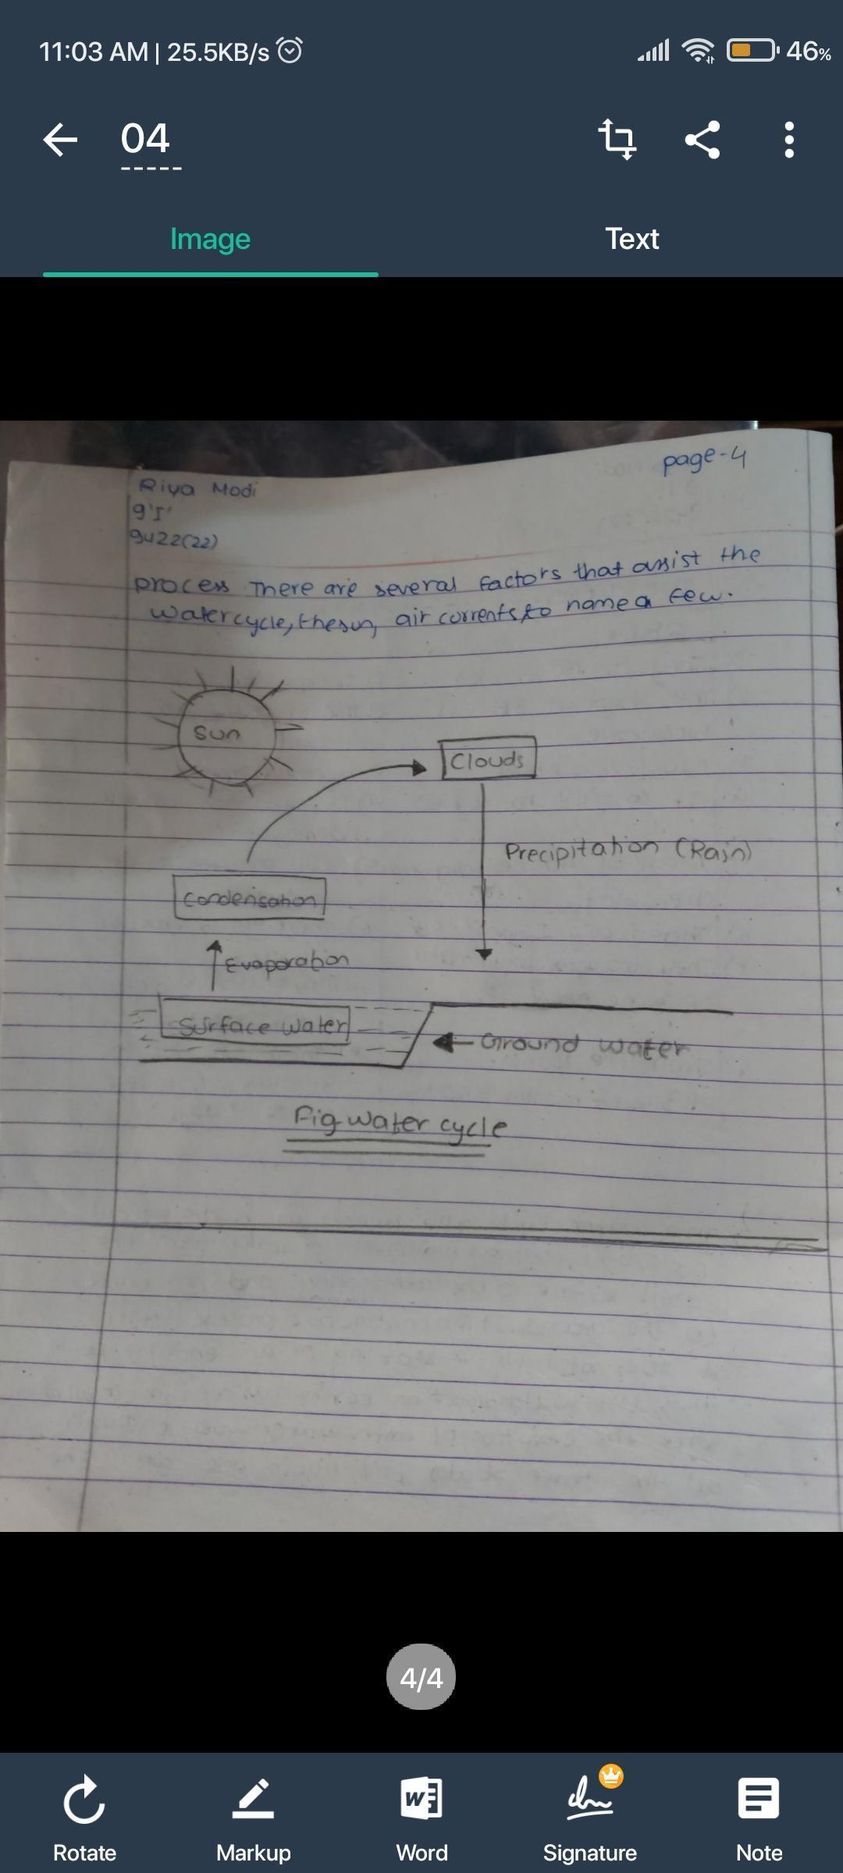 11:03 AM | 25.5KB/s
46%
04
Image
Text
page-4
Riya Modi
9'I'
9422(22)
process There are several factors that assist the
watercycle, thesun, air currents to name a few.
Sun
Clouds
Precipitation (Rain)
Condensation
Evaporation
Surface water
Ground water
Fig water cycle
4/4
Rotate
Markup
W
Word
Signature
Note